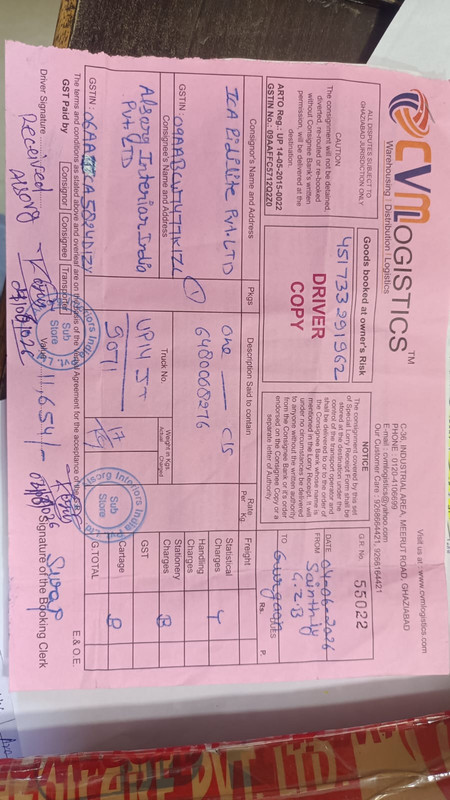 ALL DISPUTES SUBJECT TO
GHAZIABAD JURISDICTION ONLY
CVM LOGISTICS™
Warehousing | Distribution | Logistics
Visit us at : www.cvmlogistics.com
C-36, INDUSTRIAL AREA, MEERUT ROAD, GHAZIABAD
E-mail : cvmlogistics@yahoo.com
Our Customer Care : 9268654421, 9266164421
CAUTION
The consignment will not be detained,
diverted, re-routed or re-booked
without Consignee Bank's written
permission, will be delivered at the
destination.
ARTO Reg.: UP 14-05-2015-0022
GSTIN No.: 09AAFFC5712Q2Z0
Goods booked at owner's Risk
451733291962
DRIVER
COPY
NOTICE
The consignment covered by this set
of Special Lorry Receipt Form shall be
stored at the destination under the
control of the transport operator and
shall be delivered to or to the order of
the Consignee Bank whose name is
mentioned in the Lorry Receipt. It will
under no circumstances be delivered
to anyone without the written authority
from the Consignee Bank or it's order
endorsed on the Consignee Copy or a
separate letter of Authority.
G.R. No. 55022
DATE 04-06-2026
FROM
G.Z.B
TO Gurgaon
Consignor's Name and Address
Pkgs
Description Said to contain
Rate
Per Kg.
Freight
Rs. P.
ICA Pidilite Pvt. LTD
one — C/S
6480068276
Statistical
Charges
Handling
Charges
Stationery
Charges
GST
Cartage
G.TOTAL
GSTIN :
Consignee's Name and Address
1
Truck No.
Weight in Kgs.
Actual Charged
Alsorg Interior India
Pvt. LTD
UP14 JT
9071
17
Kg
GSTIN :
Sub
Store
The terms and conditions as stated above and overleaf are on the basis of the Annual Agreement for the acceptance of the G.R.
E.& O.E.
GST Paid by Consignor Consignee Transporter
Value 11,654/-
Sub
Store
Driver Signature
Signature of the Booking Clerk
Received
Alsorg